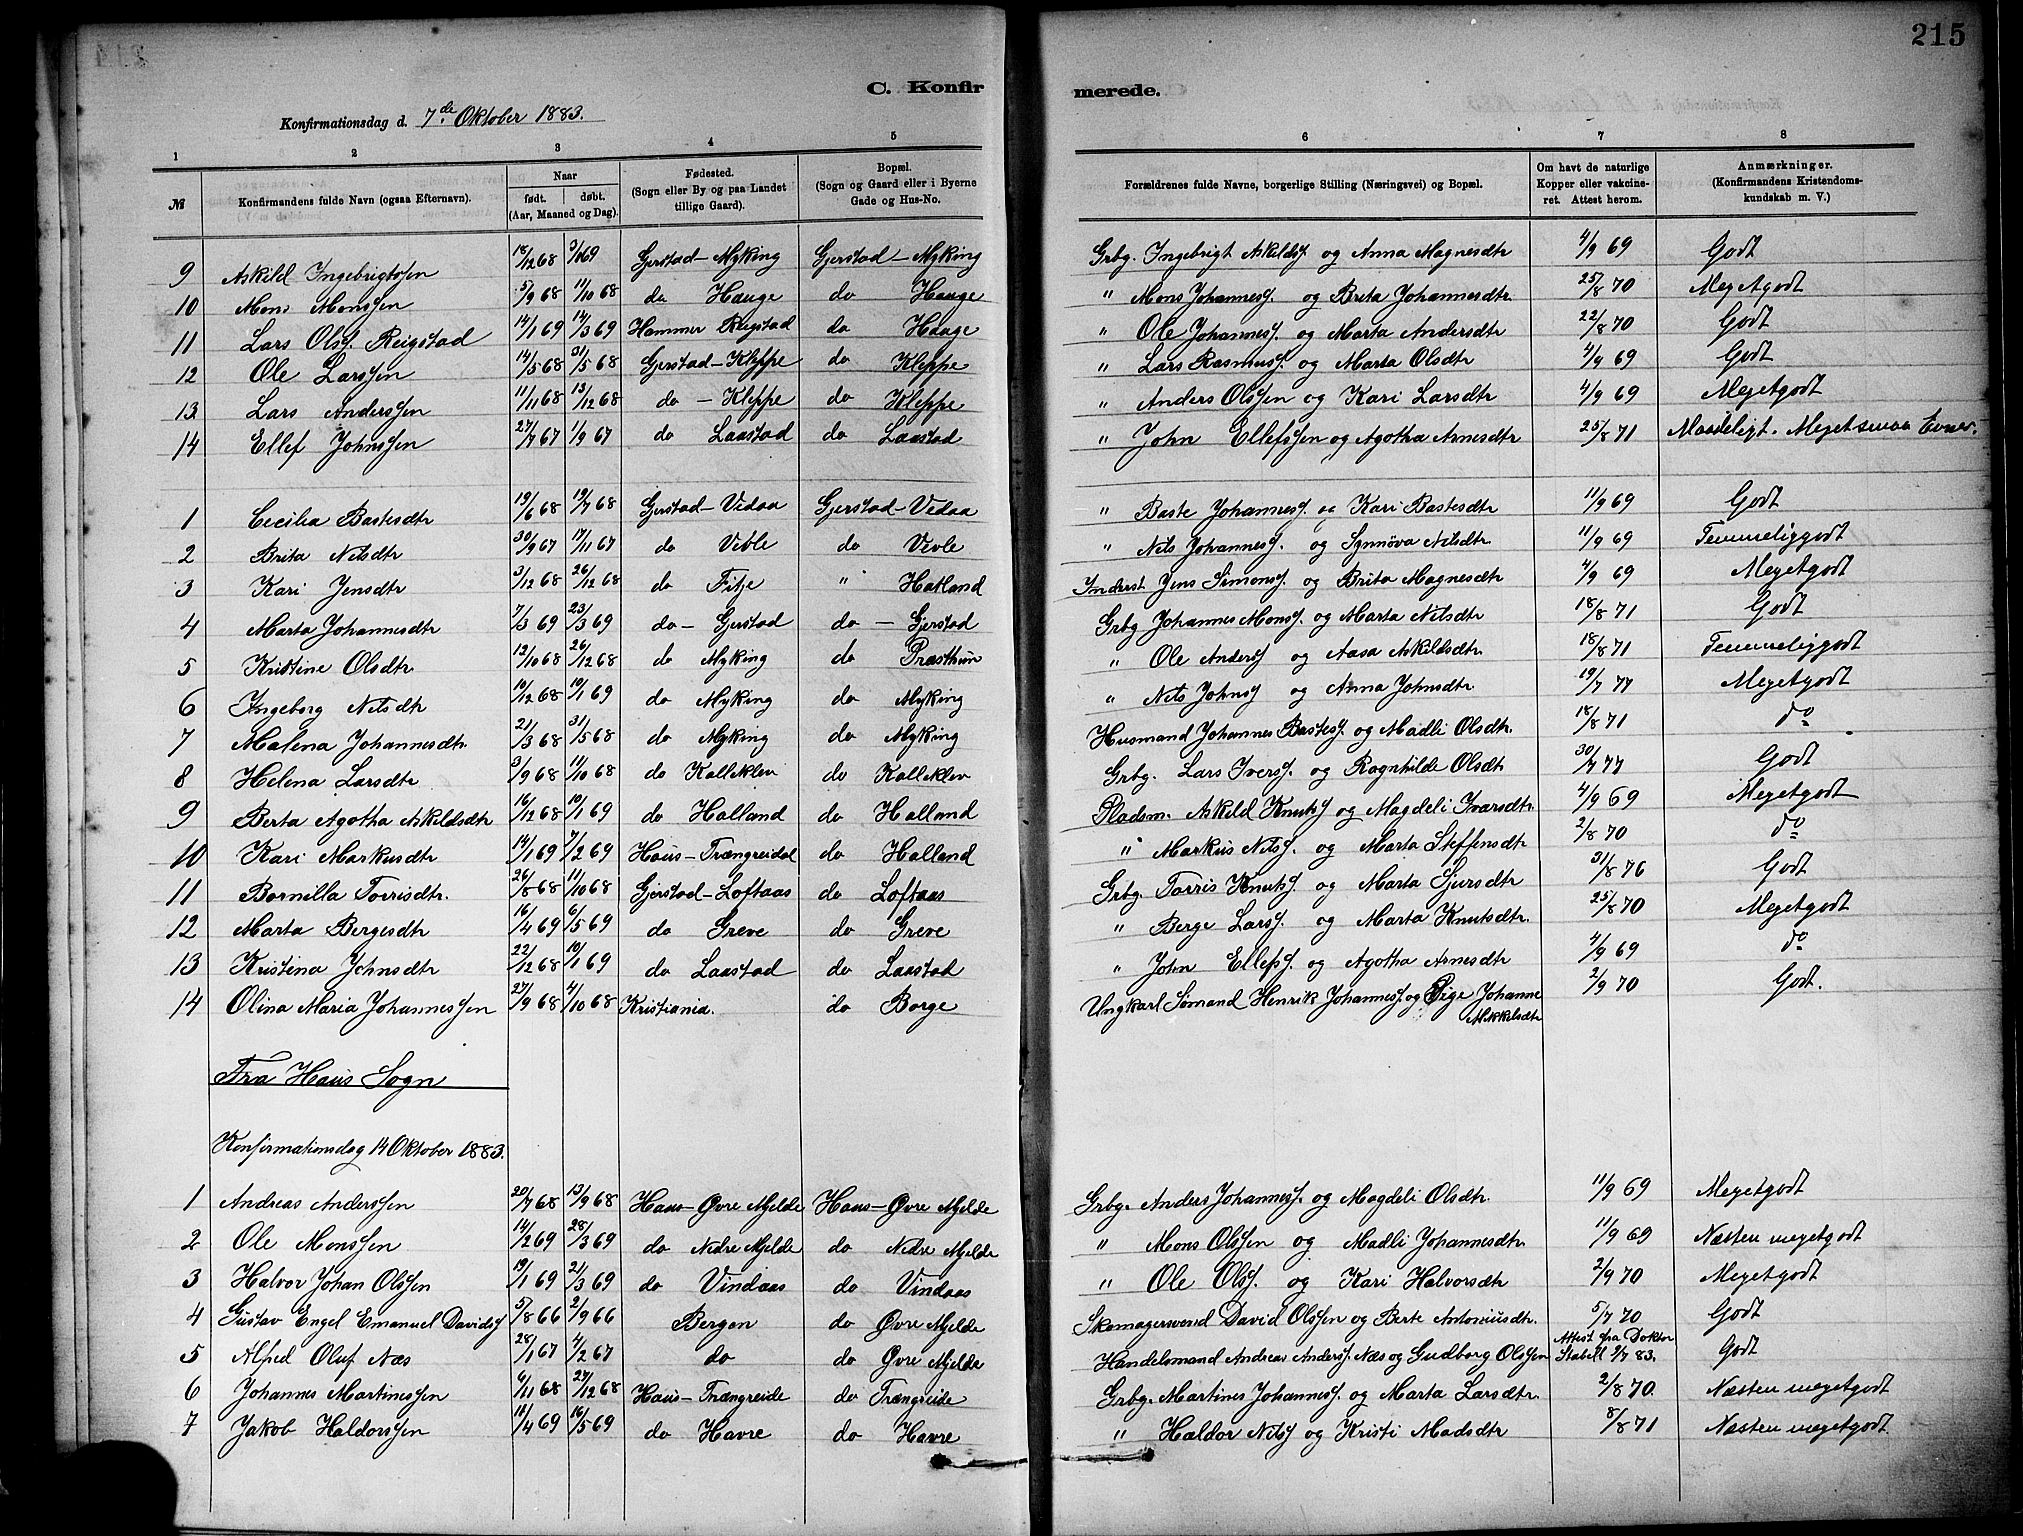 215
C. Konfirmerede.
Konfirmationsdag d. 7de Oktober 1883.
1 2 3 4 5 6 7 8
№ Konfirmandens fulde Navn (ogsaa Efternavn). Naar født. døbt. (Aar, Maaned og Dag). Fødested. (Sogn eller By og paa Landet tillige Gaard). Bopæl. (Sogn og Gaard eller i Byerne Gade og Hus-No. Forældrenes fulde Navne, borgerlige Stilling (Næringsvei) og Bopæl. Om havt de naturlige Kopper eller vakcineret. Attest herom. Anmærkninger. (Konfirmandens Kristendomskundskab m. V.)
9 Askild Ingebrigtssen 18/12 68 3/1 69 Gjerstad - Myking Gjerstad - Myking Grbg. Ingebrigt Askilds. og Anna Magnesdtr 4/9 69 Godt
10 Mons Monssen 5/9 68 11/10 68 do Hauge do Hauge " Mons Johanness. og Brita Johannesdtr. 25/8 70 Megetgodt
11 Lars Ols. Reigstad 14/1 69 14/3 69 Hammer Reigstad do Hauge " Ole Johanness. og Marta Andersdtr 22/8 70 Godt
12 Ole Larssen 14/5 68 31/5 68 Gjerstad - Kleppe do Kleppe " Lars Rasmuss. og Marta Olsdtr 4/9 69 Godt
13 Lars Anderssen 11/11 68 13/12 68 do - Kleppe do Kleppe " Anders Olssen og Kari Larsdtr 4/9 69 Megetgodt
14 Ellef Johnssen 27/7 67 1/9 67 do Laastad do Laastad " John Ellefssen og Agotha Arnesdtr 25/8 71 Maadeligt. Meget smaa Evner.
1 Cecilia Bastesdtr 19/6 68 19/7 68 Gjerstad - Vedaa Gjerstad - Vedaa " Baste Johanness. og Kari Bastesdtr 11/9 69 Godt
2 Brita Nilsdtr 30/9 67 17/11 67 do Veble do Vevle " Nils Johanness. og Synnöva Nilsdtr. 11/9 69 Temmeliggodt
3 Kari Jensdtr 3/12 68 26/12 68 do Fitje " Hatland Inderst Jens Simons. og Brita Magnesdtr 4/9 69 Megetgodt
4 Marta Johannesdtr 7/3 69 23/3 69 do - Gjerstad do - Gjerstad Grbg Johannes Mons. og Marta Nilsdtr 18/8 71 Godt
5 Kristine Olsdtr 12/10 68 26/12 68 do Myking do Præsthun " Ole Anders. og Aasa Askildsdtr. 18/8 71 Temmeliggodt
6 Ingeborg Nilsdtr 10/12 68 10/1 69 do Myking do Myking " Nils Johns. og Anna Johnsdtr. 19/7 77 Megetgodt
7 Malena Johannesdtr. 21/3 68 31/5 68 do Myking do Myking Husmand Johannes Bastes. og Madli Olsdtr. 18/8 71 do
8 Helena Larsdtr 3/9 68 11/10 68 do Kalleklev do Kalleklev Grbg. Lars Ivers. og Rognhilde Olsdtr 30/7 77 Godt
9 Berta Agotha Askildsdtr 16/12 68 10/1 69 do Halland do Halland Pladsm. Askild Knuts. og Magdeli Ivarsdtr. 4/9 69 Megetgodt
10 Kari Markusdtr 14/1 69 7/2 69 Haus - Trængreidal do Halland " Markus Nils. og Marta Steffensdtr 2/8 70 do
11 Bornilla Torrisdtr. 26/8 68 11/10 68 Gjerstad - Loftaas do Loftaas Grbg. Torris Knuts. og Marta Sjursdtr 31/8 76 Godt
12 Marta Bergesdtr 16/4 69 6/5 69 do Greve do Greve " Berge Lars. og Marta Knutsdtr. 25/8 70 Megetgodt
13 Kristina Johnsdtr 22/12 68 10/1 69 do Laastad do Laastad " John Ellefs. og Agotha Arnesdtr 4/9 69 do
14 Olina Maria Johannessen 27/9 68 4/10 68 Kristiania. do Borge Ungkarl Sømand Henrik Johanness. og Pige Johanne Mikkelsdtr 2/9 70 Godt.
Fra Haus Sogn
Konfirmationsdag 14 Oktober 1883.
1 Andreas Anderssen 20/7 68 13/9 68 Haus - Øvre Mjelde Haus - Øvre Mjelde Grbg. Anders Johanness. og Magdeli Olsdtr. 11/9 69 Megetgodt
2 Ole Monssen 14/2 69 28/3 69 do Nedre Mjelde do Nedre Mjelde " Mons Olssen og Madli Johannesdtr. 11/9 69 Næsten megetgodt
3 Halvor Johan Olssen 19/1 69 21/3 69 do Vindaas do Vindaas " Ole Ols. og Kari Halvorsdtr 2/9 70 Megetgodt
4 Gustav Engel Emanuel Davids. 5/8 66 2/9 66 Bergen do Øvre Mjelde Skomagersvend David Olssen og Berte Antoniusdtr. 5/7 70 Godt
5 Alfred Oluf Næs 28/1 67 4/2 67 do do Øvre Mjelde Handelsmand Andreas Anders. Næs og Gudborg Olssen Attest fra Doktor Stabell 2/7 83. Godt
6 Johannes Martinessen 6/11 68 27/12 68 Haus - Trængreide do Trængreide Grbg. Martines Johanness. og Marta Larsdtr. 2/8 70. Næsten megetgodt
7 Jakob Haldorssen 11/4 69 16/5 69 do Havre do Havre " Haldor Nils. og Kristi Madsdtr 8/8 71 Næsten megetgodt.